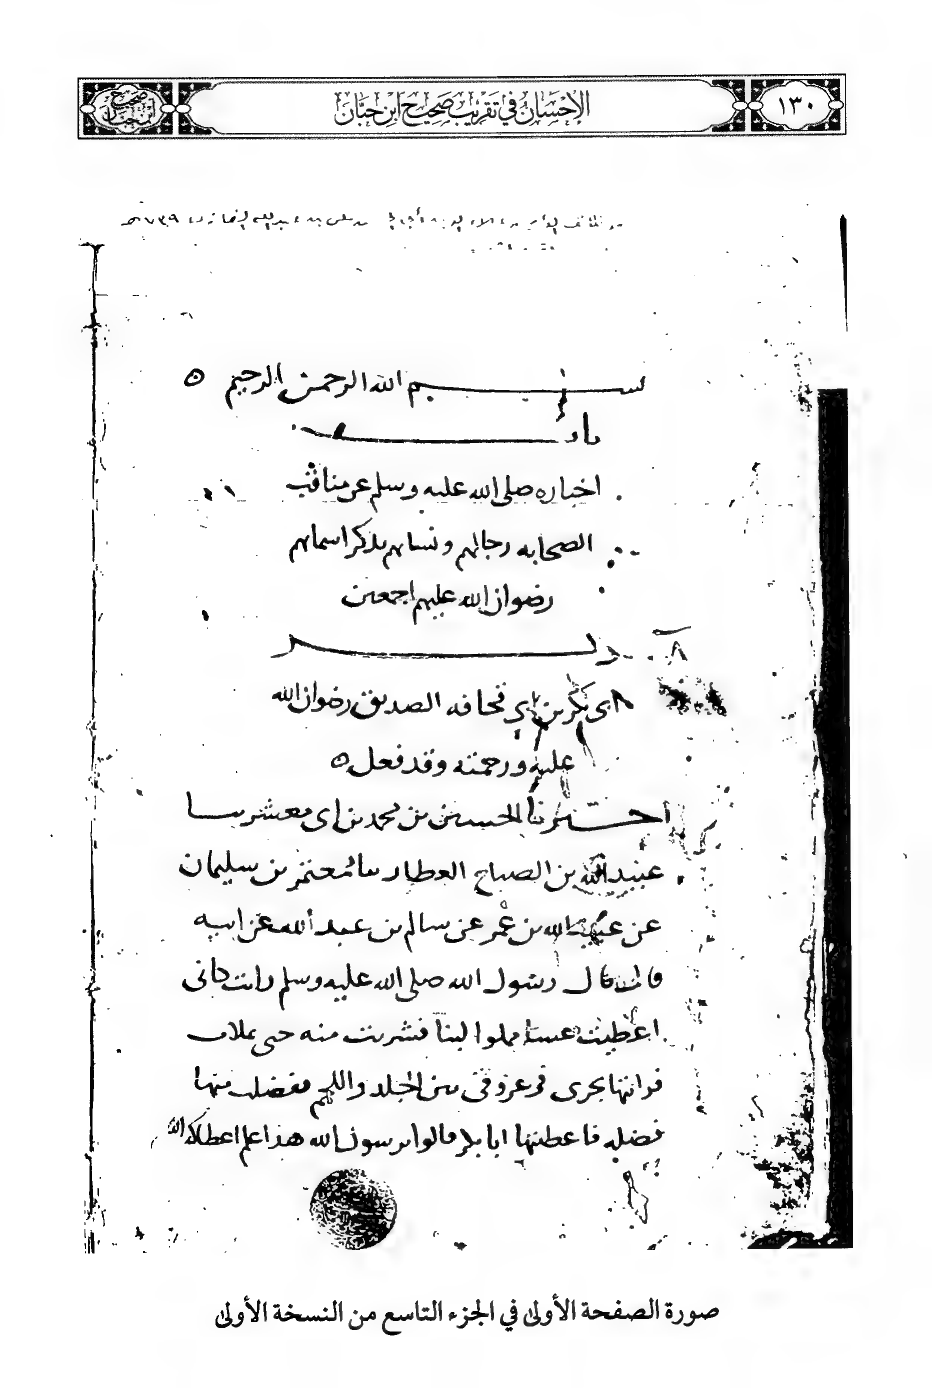 ١٣٠
الإحسان في تقريب صحيح ابن حبان
صحيح ابن حبان
بسم الله الرحمن الرحيم ٥
باب
اخباره صلى الله عليه وسلم عن مناقب
الصحابه رجالهم ونسائهم بذكر اسمائهم
رضوان الله عليهم اجمعين
ذكر
ابي بكر بن ابي قحافه الصديق رضوان الله
عليه ورحمته وقد فعل ٥
اخبرنا الحسين بن محمد بن ابي معشر ثنا
عبيد الله بن الصباح العطار ثنا معتمر بن سليمان
عن عبيد الله بن عمر عن سالم بن عبد الله عن ابيه
قال قال رسول الله صلى الله عليه وسلم رايت كاني
اعطيت عسا مملوا لبنا فشربت منه حتى تملات
فرايتها تجري في عروقي بين الجلد واللحم ففضلت منها
فضله فاعطيتها ابا بكر قالوا يرسول الله هذا علم اعطاكه الله
صورة الصفحة الأولى في الجزء التاسع من النسخة الأولى